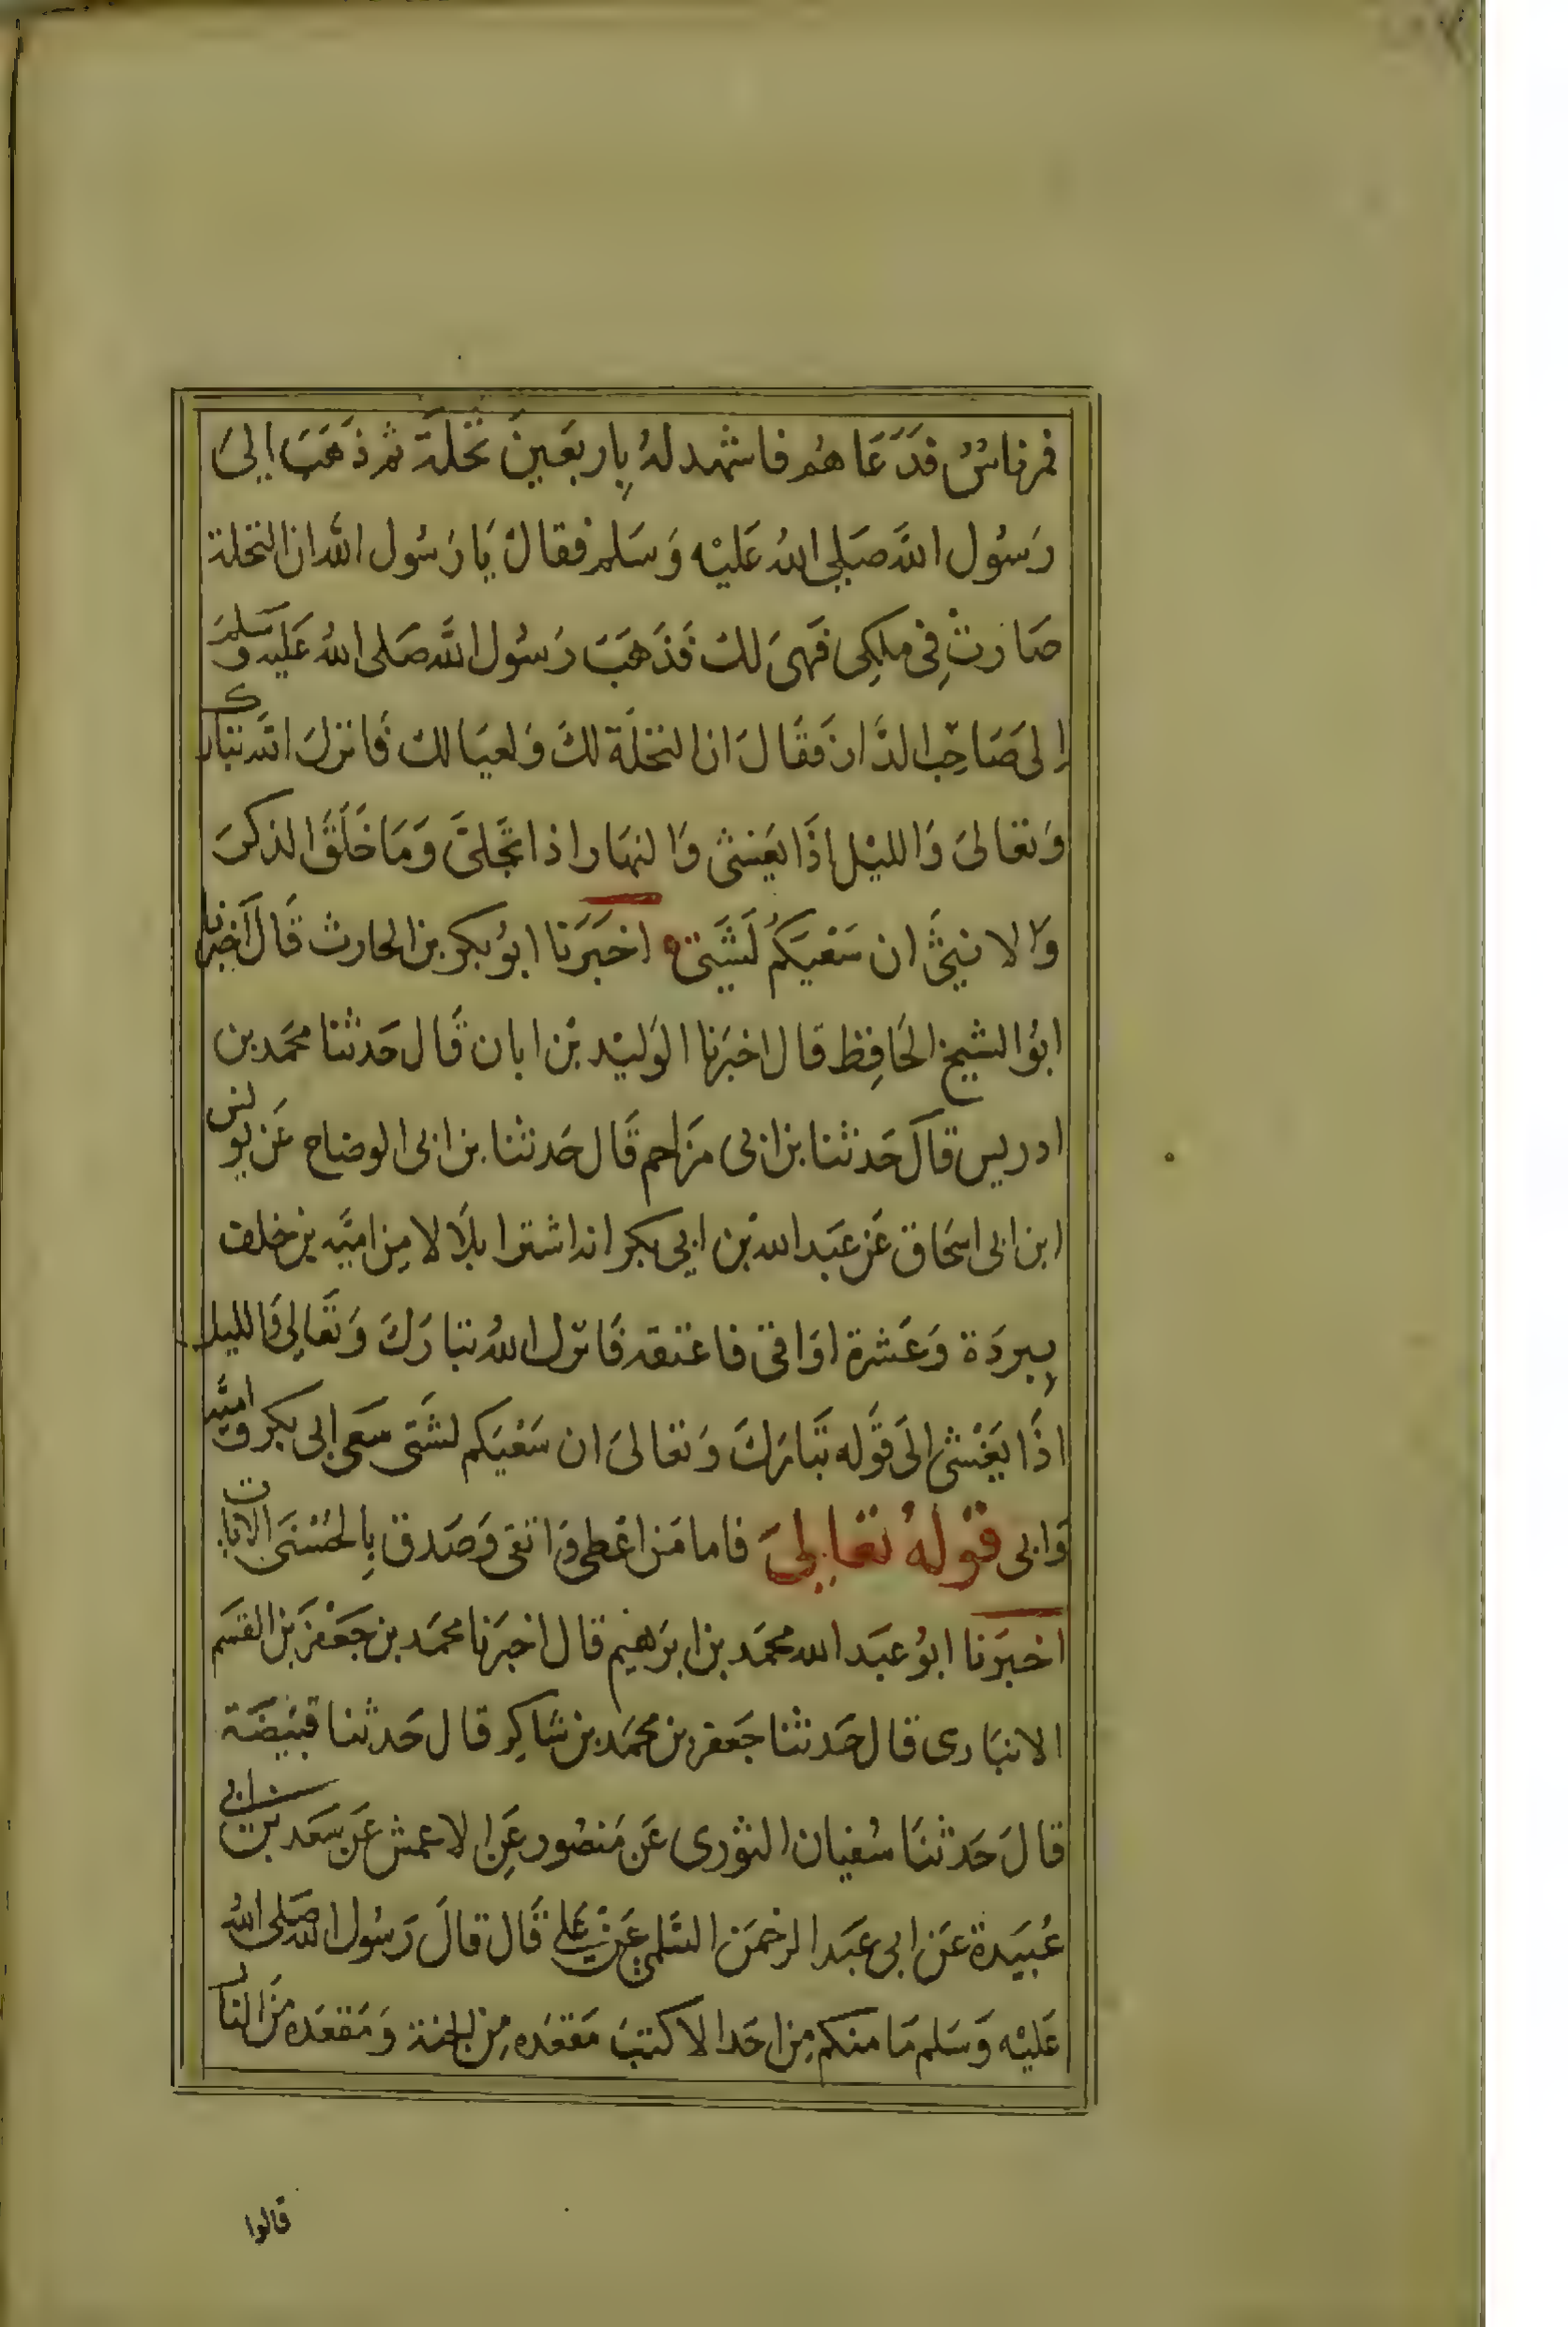 فمر ناسٌ فدَعَاهُم فاشهد لهُ بِاربعَينَ نخَلةَ ثم ذهَبَ إلىَ
رَسُول اللهَ صَلى اللهُ عَليْه وَسَلم فقالَ يَا رَسُول اللّٰه ان النخلة
صَارتْ فِى ملِكِى فَهىَ لك فَذهَبَ رَسُول اللهَّ صَلى اللهُ عَليه وَسَلم
إلىَ صَاحِبِ الدَّار فَقالَ ان النخلَة لكَ وَلعيَالك فَانزلَ اللهَّ تبارك
وَتعَالىَ وَالليْل إذَا يَغشى وَالنهَار اذا تَجلىَّ وَمَا خَلَقَ الذكرَ
وَالانثىَ ان سَعْيَكمُ لَشَتىَّ اخبَرَنا ابوُ بكر بن الحارث قَالَ اخبَرنا
ابوُ الشيخ الحَافِظ قال اخبَرنا الوَليْد بْن ابان قَال حَدثنا محَمد بن
ادريس قالَ حَدثنا بن ابى مزَاحم قَال حَدثنا بن ابى الوضاح عَن يونس
ابن ابى اسحَاق عَن عَبَد الله بْن ابى بكر انه اشترا بلاَلا مِن اميَّه بن خلف
بِبردَة وَعَشرة اوَاقى فاعتقه فَانزل اللهُ تبارَكَ وَتَعَالِى وَالليل
اذَا يَغْشى إلَى قَوله تَبَارَكَ وَتعَالىَ ان سَعْيَكم لشَتى سَعىَ ابى بكر وَاميَّه
وَابى قوْلهُ تعَالىَ فاما مَن اعْطى وَاتقى وَصَدق بِالحُسْنىَ الايات
اخبَرَنا ابوُ عبَد الله محمَد بن ابرَهيْم قال اخبَرنا محمَد بن جَعْفَر بن القسَم
الانبَارى قال حَدثنا جَعفر بن محمَد بن شاكِر قال حَدثنا قبَيصَة
قالَ حَدثنَا سُفيان الثورى عَن مَنصُور عَنِ الاعمش عَن سَعَد بن ابى
عُبيَدة عَن ابى عبَد الرحمَن السَّلمى عَنْ عَلى قَال قالَ رَسُول الله صَلى اللهُ
عَليْه وَسَلم مَا منكم مِن احَد الا كتبَ مَقعَده مِن الجنة وَمَقعَده مَن النار
قالوا